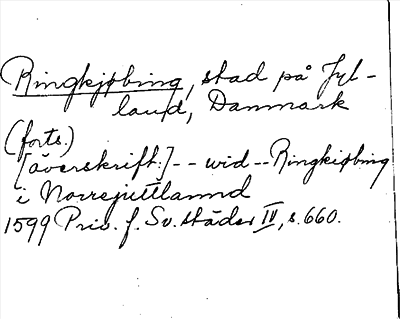 Ringkjøbing, stad på Jyl-
land, Danmark
(forts.)
[överskrift:] -- wid -- Ringkiøbing
i Norrejuttlannd
1599 Priv. f. Sv. städer IV, s. 660.